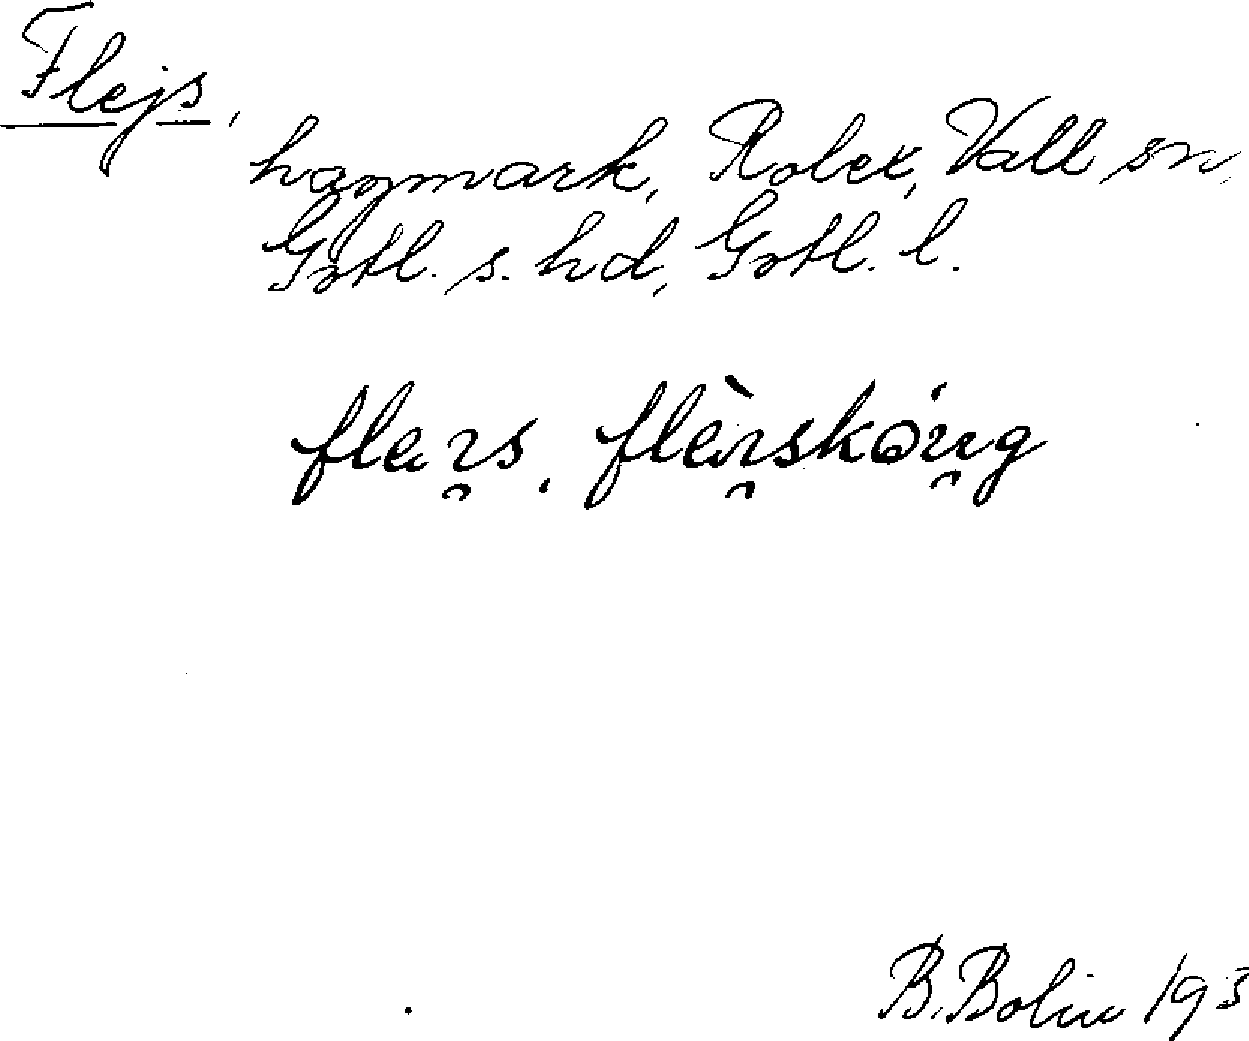 Flejs,
hagmark, Rolex, Vall sn,
Gotl. s. hd, Gotl. l.
B. Bolin 193